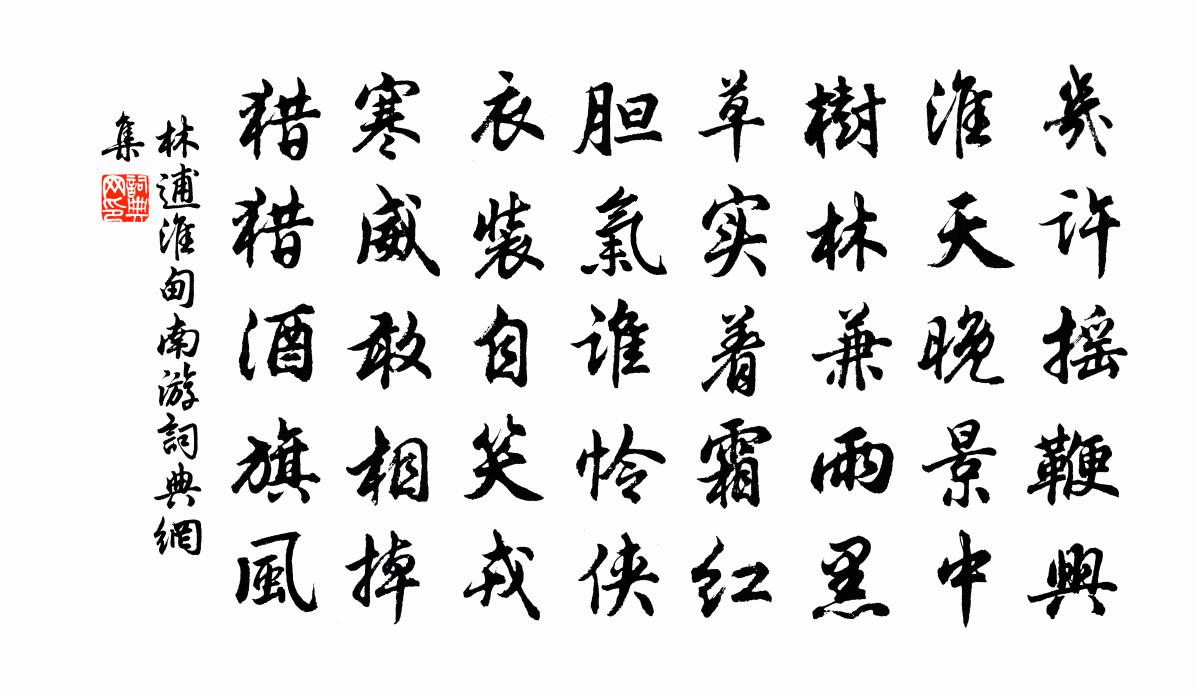 幾许摇鞭興
淮天晚景中
樹林兼雨黑
草实着霜红
胆氣谁怜侠
衣装自笑戎
寒威敢相掉
猎猎酒旗風
林逋淮甸南游詞典網
集
詞典
网印